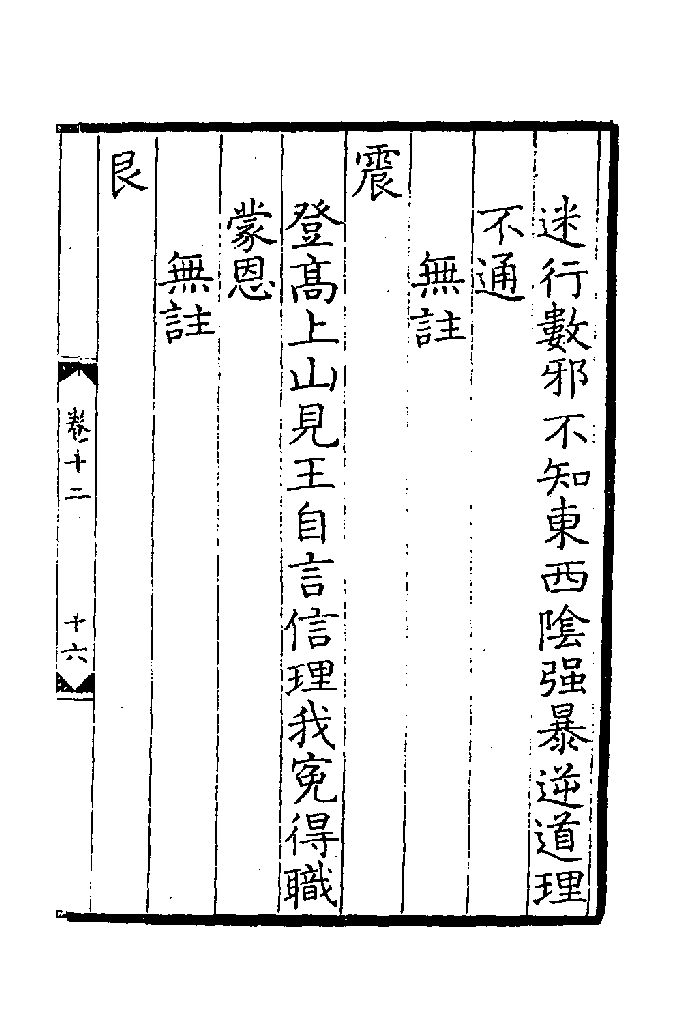 迷行數邪不知東西陰强暴逆道理
不通
無註
震
登髙上山見王自言信理我寃得職
蒙恩
無註
艮
卷十二
十六